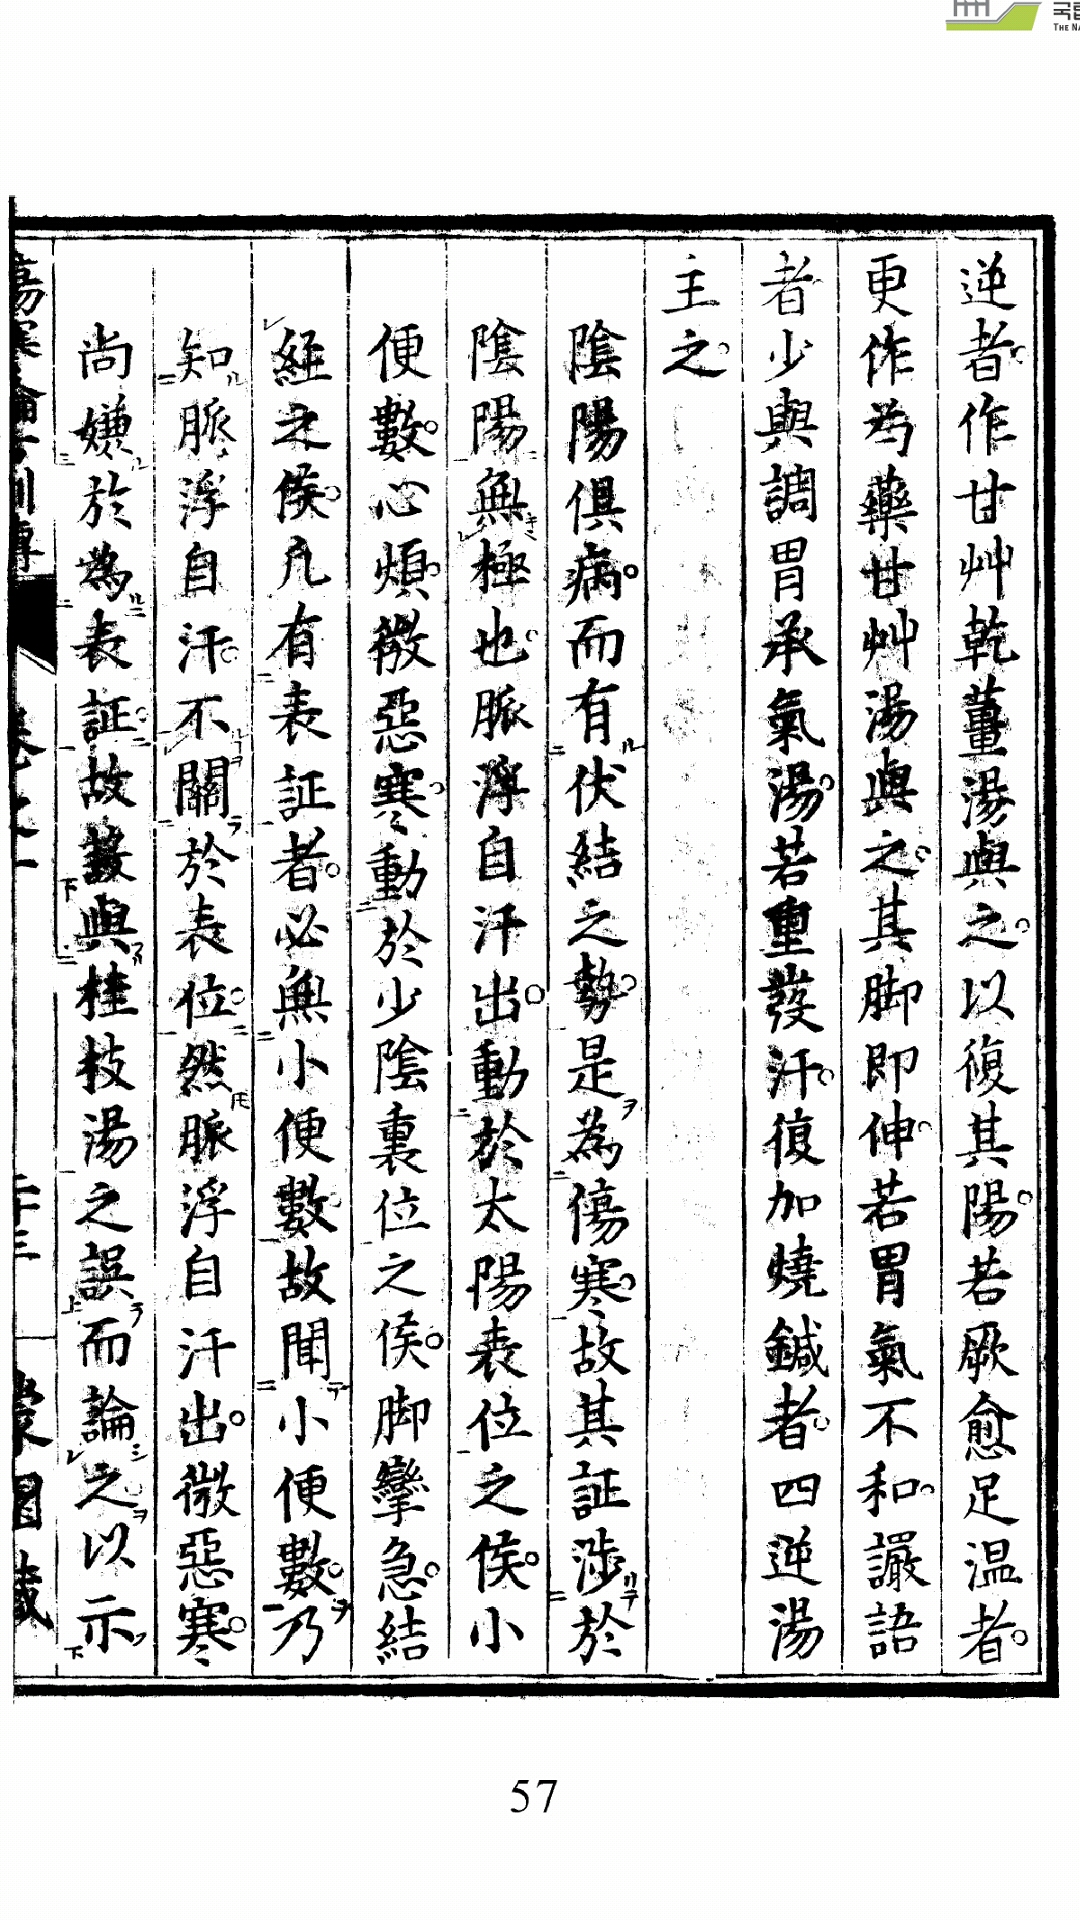 逆者作甘艸乾薑湯與之以復其陽若厥愈足温者
更作芍藥甘艸湯與之其脚即伸若胃氣不和讝語
者少與調胃承氣湯若重發汗復加燒鍼者四逆湯
主之
陰陽俱病而有伏結之勢是為傷寒故其証涉於
陰陽無極也脈浮自汗出動於太陽表位之候小
便數心煩微惡寒動於少陰裏位之候脚攣急結
經之候凡有表証者必無小便數故聞小便數乃
知脈浮自汗不關於表位然脈浮自汗出微惡寒
尚嫌於為表証故數與桂枝湯之誤而論之以示
57